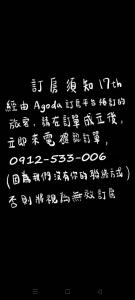 訂房須知17th
經由Agoda訂房平台預訂的
旅客，請在訂單成立後，
立即來電確認訂單，
0912-533-006
(因為我們沒有你的聯絡方式)
否則將視為無效訂房